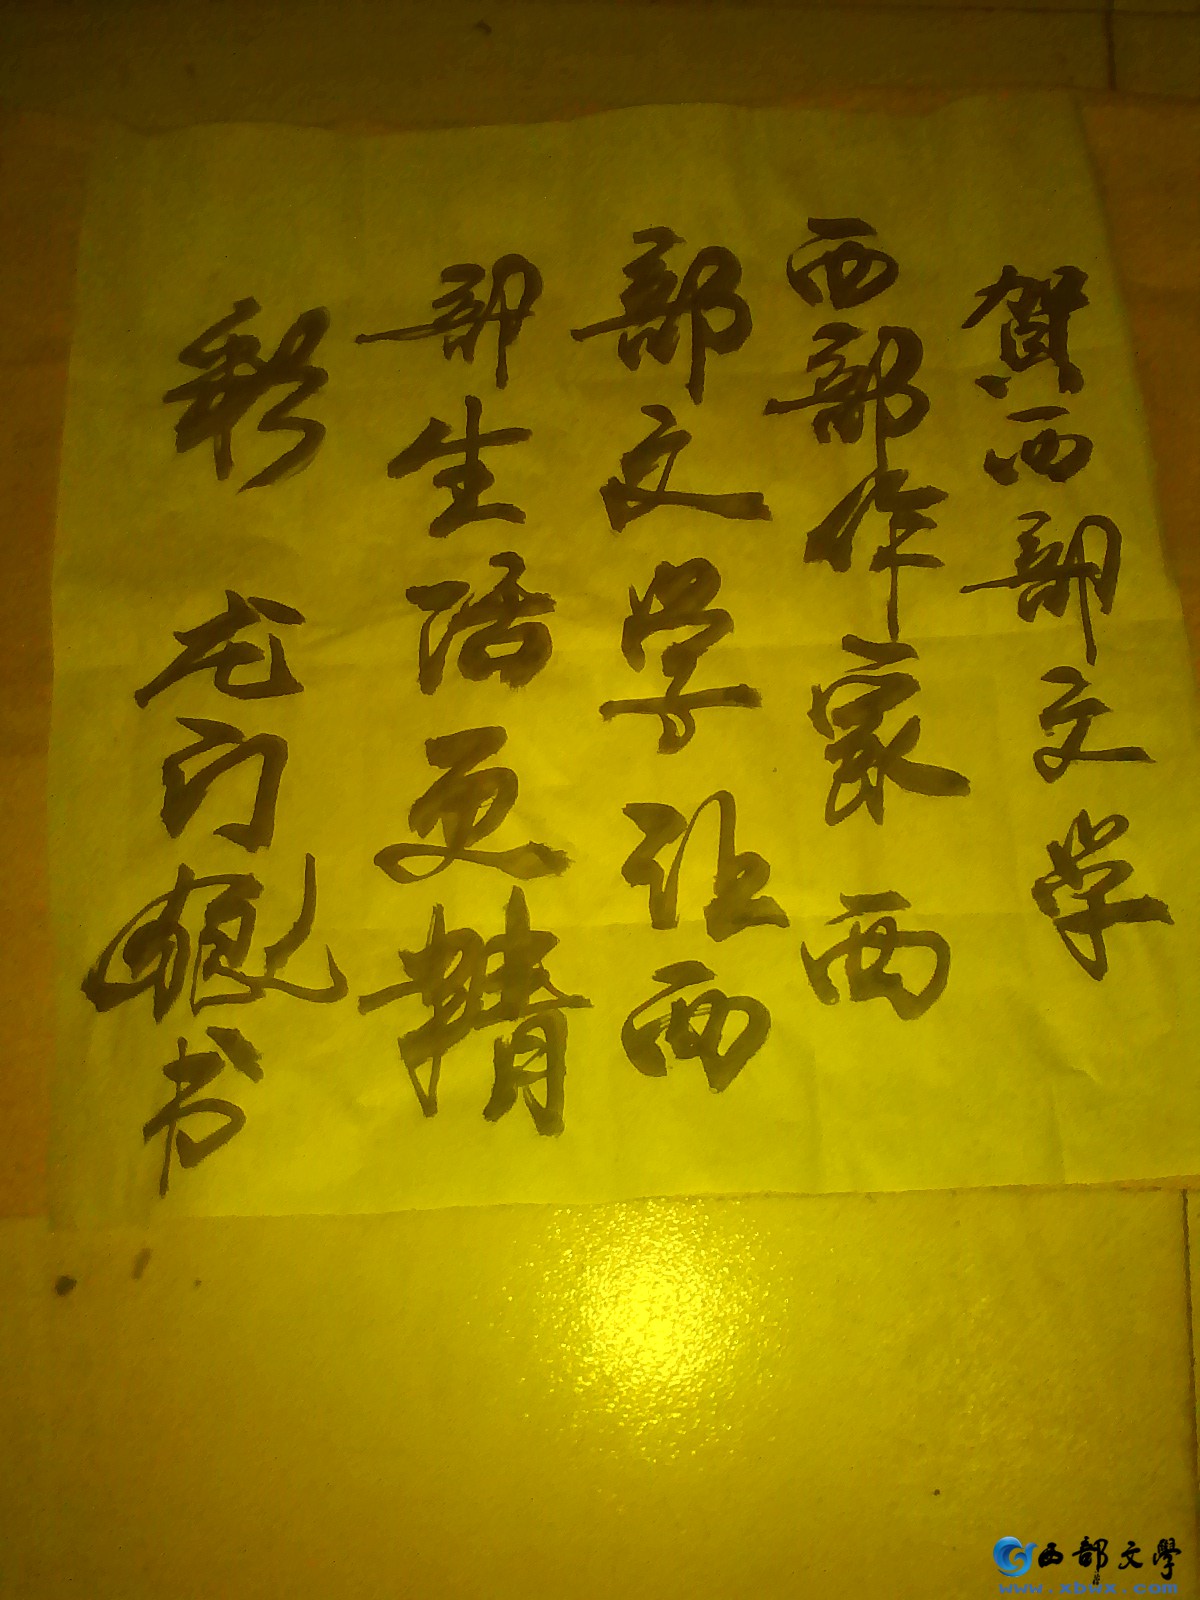 賀西部文学
西部作家西
部文学让西
部生活更精
彩 龙门 书
西部文學
www.xbwx.com